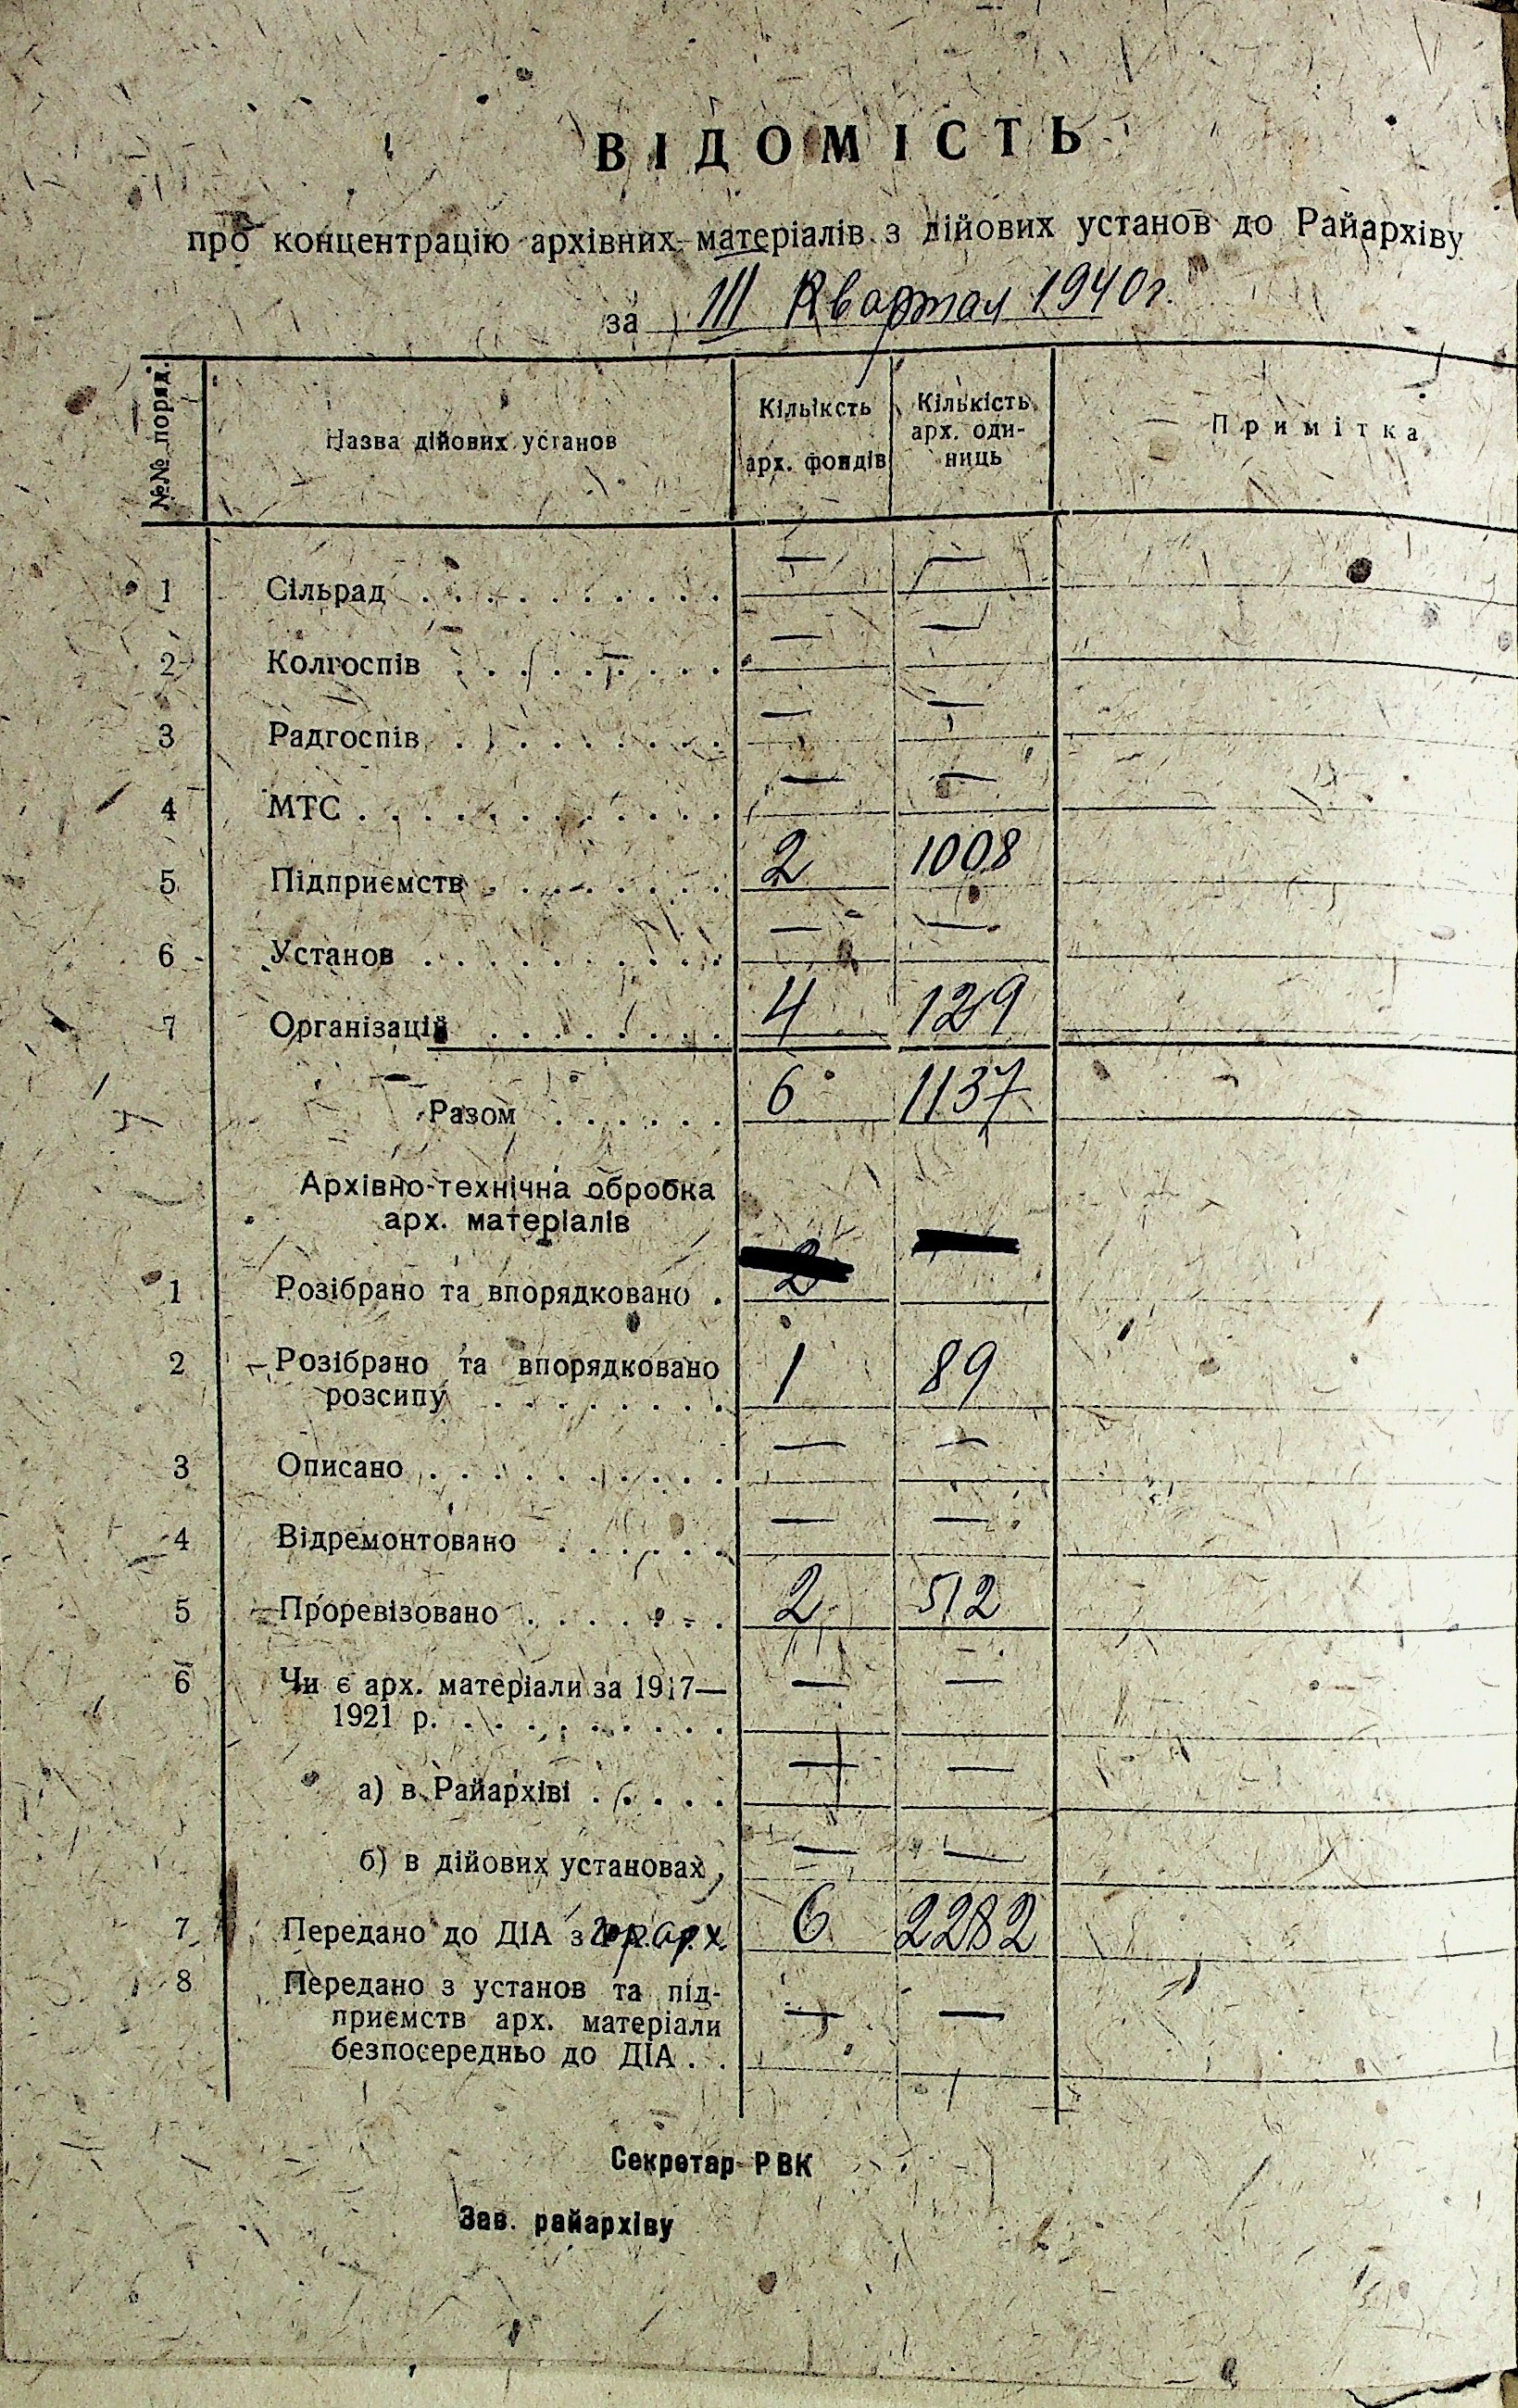 ВІДОМІСТЬ
про концентрацію архівних матеріалів з дійових установ до Райархіву
за III Квартал 1940г.
№№ поряд. Назва дійових установ Кільіксть арх. фондів Кількість арх. оди- ниць Примітка
1 Сільрад . . . . . . . . . . — —
2 Колгоспів . . . . . . . . . — —
3 Радгоспів . . . . . . . . . — —
4 МТС . . . . . . . . . . . . — —
5 Підприємств . . . . . . . . 2 1008
6 Установ . . . . . . . . . . — —
7 Організацій . . . . . . . . 4 129
Разом . . . . . . 6 1137
Архівно-технічна обробка
арх. матеріалів
1 Розібрано та впорядковано . —
2 Розібрано та впорядковано
розсипу . . . . . . . . 1 89
3 Описано . . . . . . . . . . — —
4 Відремонтовано . . . . . . — —
5 Проревізовано . . . . . . . 2 512
6 Чи є арх. матеріали за 1917—
1921 р. . . . . . . . . . — —
а) в Райархіві . . . . . — —
б) в дійових установах, — —
7 Передано до ДІА з 6 2282
8 Передано з установ та під-
приємств арх. матеріали
безпосередньо до ДІА . . — —
Секретар РВК
Зав. райархіву